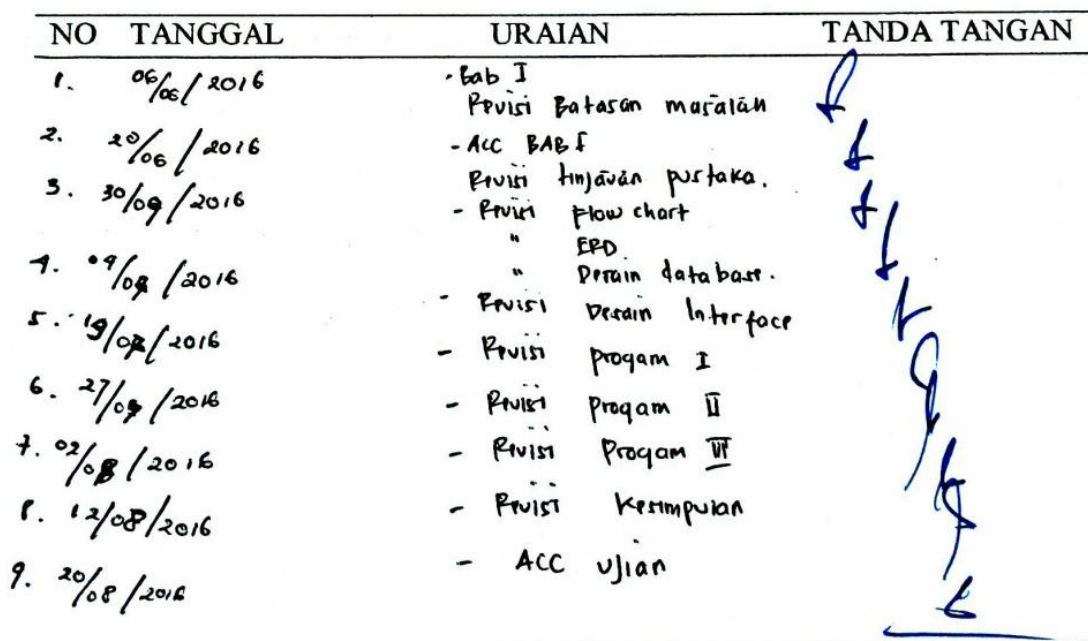 NO TANGGAL URAIAN TANDA TANGAN
1. 06/06/2016 - Bab I
Revisi Batasan masalah
2. 20/06/2016 - ACC BAB I
Revisi tinjauan pustaka.
3. 30/09/2016 - Revisi Flow chart
" ERD
4. /2016 " Desain database.
5. 19/ /2016 - Revisi Desain Interface
- Revisi progam I
6. 27/ /2016 - Revisi Progam II
7. 02/08/2016 - Revisi Progam III
8. 12/08/2016 - Revisi Kesimpulan
9. 20/08/2016 - ACC Ujian